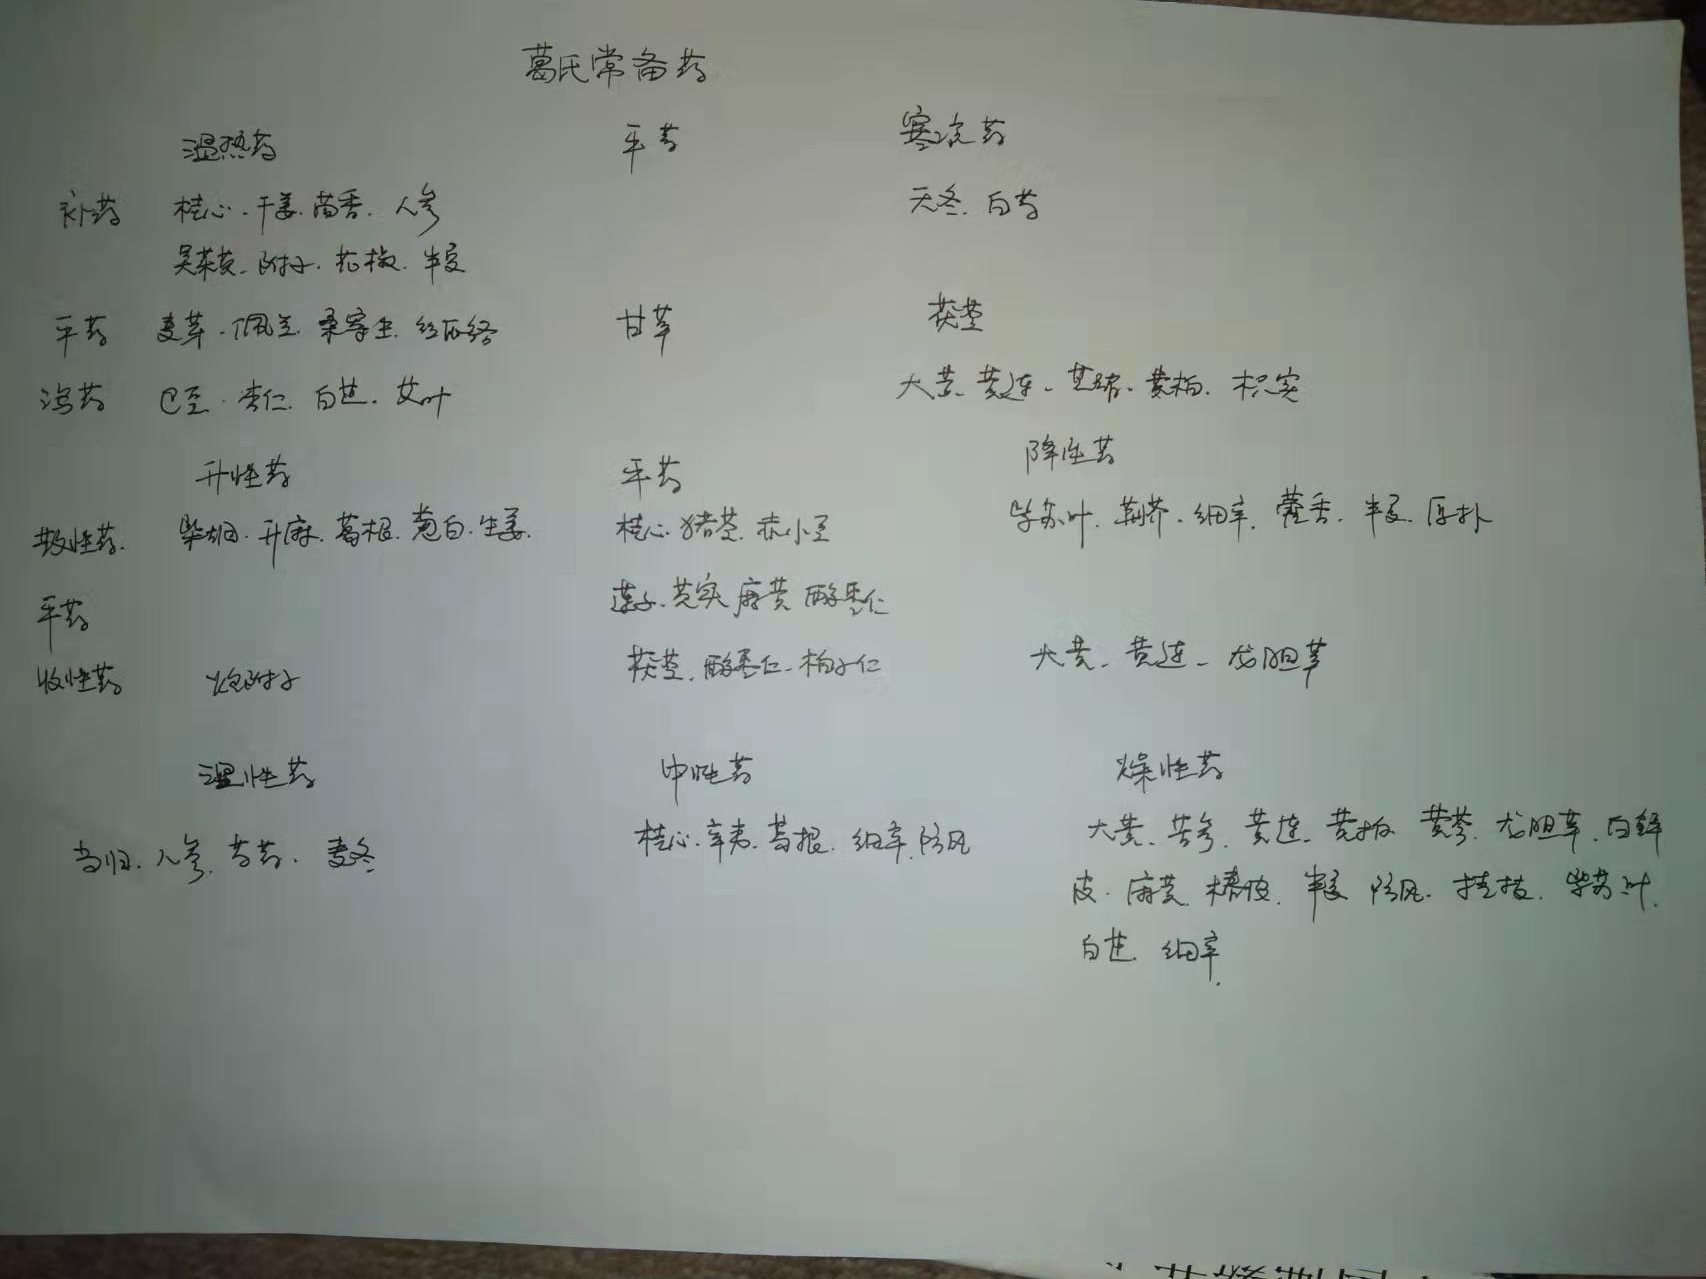 葛氏常备药
温热药 平药 寒凉药
补药 桂心、干姜、茴香、人参 天冬、白芍
吴茱萸、附子、花椒、半夏
平药 麦芽、佩兰、桑寄生、丝瓜络 甘草 茯苓
泻药 巴豆、杏仁、白芷、艾叶 大黄、黄连、黄柏、枳实
升性药 平药 降性药
散性药 柴胡、升麻、葛根、葱白、生姜 桂心、猪苓、赤小豆 紫苏叶、荆芥、细辛、藿香、半夏、厚朴
平药 莲子、芡实 麻黄 酸枣仁
收性药 炮附子 茯苓、酸枣仁、柏子仁 大黄、黄连、龙胆草
湿性药 中性药 燥性药
当归、人参、芍药、麦冬 桂心、辛夷、葛根、细辛、防风 大黄、苦参、黄连、黄柏 黄芩、龙胆草、白鲜
皮、麻黄 半夏 防风、桂枝、紫苏叶、
白芷、细辛